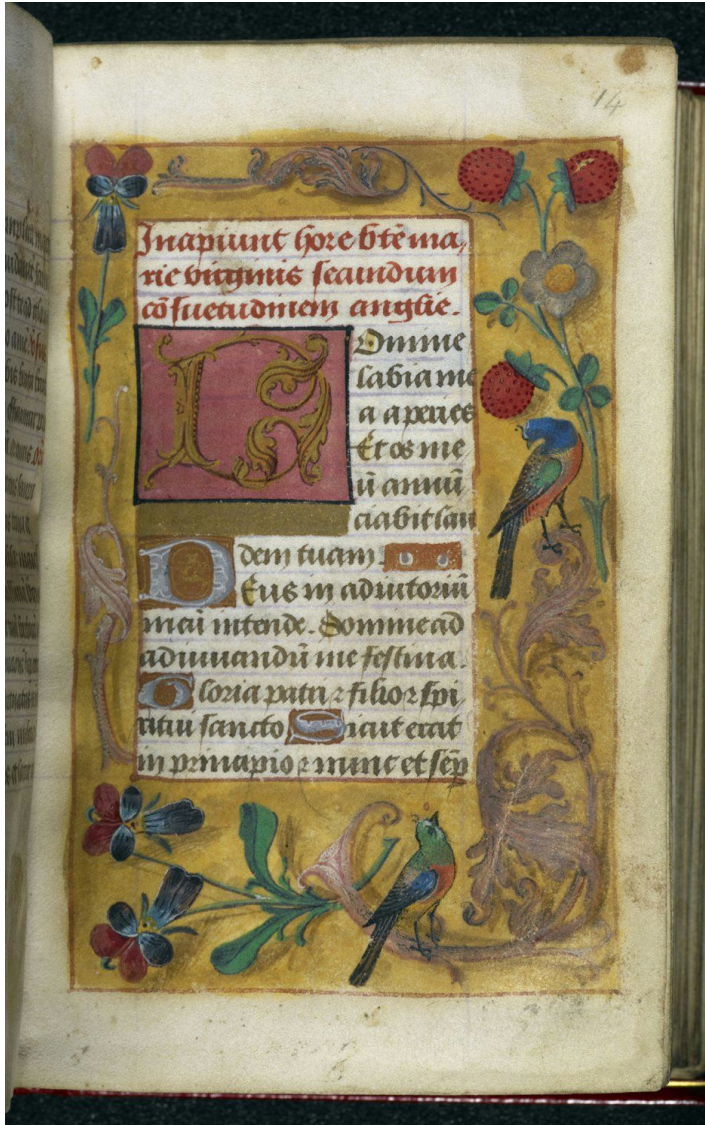 14
Incipiunt hore bt̄e ma,
rie virginis secundum
cōsuetudinem anglie.
Domine
labia me
a aperies
Et os me
ū annū
ciabit lau
dem tuam.
Deus in adiutoriū
meū intende. Domine ad
adiuuandū me festina.
Gloria patri ⁊ filio ⁊ spi
ritui sancto Sicut erat
in principio ⁊ nunc et semꝑ